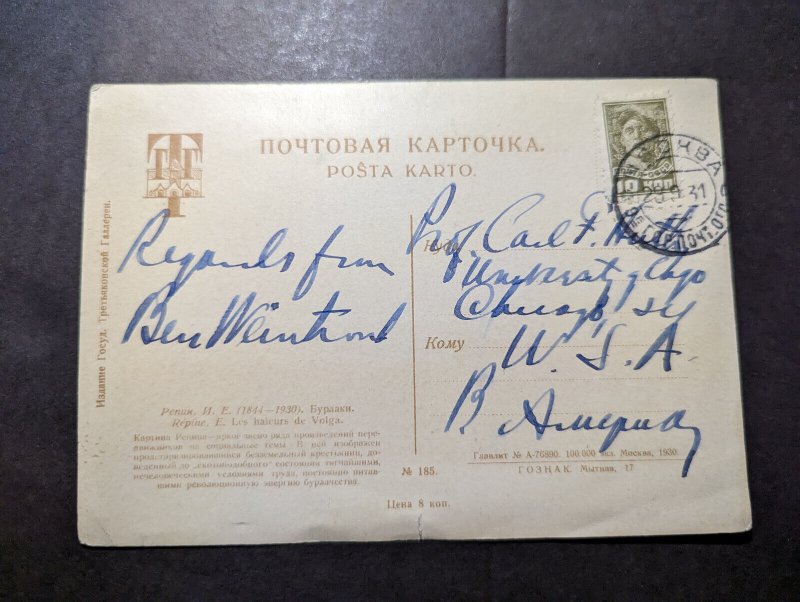 ПОЧТОВАЯ КАРТОЧКА.
POŜTA KARTO.
Издание Госуд. Третьяковской Галлереи.
Regards from
Ben Weintrout
Куда
Prof. Carl F.
University Chgo
Chicago, Ill
Кому
U. S. A.
В Америку
МОСКВА
31
Репин, И. Е. (1844—1930). Бурлаки.
Répine, E. Les haleurs de Volga.
Картина Репина—яркое звено ряда произведений пере-
движников на социальные темы. В ней изображен
пролетаризировавшийся безземельный крестьянин, до-
веденный до „скотоподобного" состояния тягчайшими,
нечеловеческими условиями труда, постоянно питав-
шими революционную энергию бурлачества.
№ 185.
Главлит № А-76890. 100.000 экз. Москва, 1930.
ГОЗНАК. Мытная, 17
Цена 8 коп.